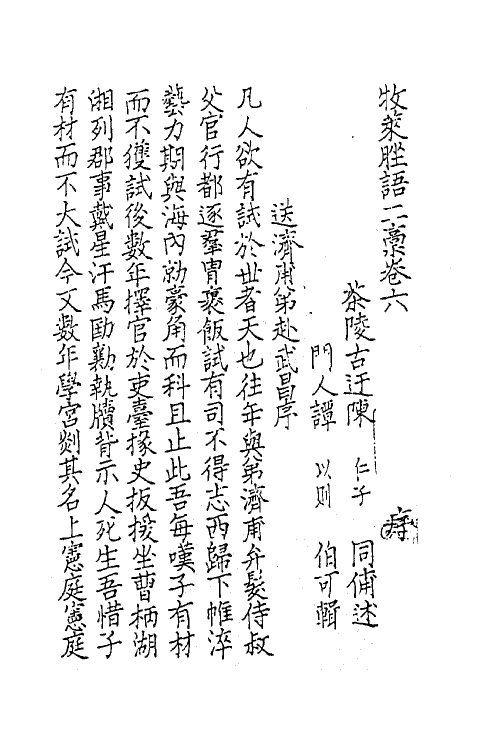 牧萊脞語二藳卷六
茶陵古迂陳 仁子 同俌述
門人譚 以則 伯可輯
送濟甫弟赴武昌序
凡人欲有試於世者天也往年與弟濟甫弁髮侍叔
父官行都逐羣冑褒飯試有司不得志西歸下帷淬
藝力期與海內勍豪角而科且止此吾每嘆子有材
而不獲試後數年擇官於吏臺掾史扳援坐曹柄湖
湘列郡事戴星汗馬劻勷執牘背示人死生吾惜子
有材而不大試今又數年學宮剡其名上憲庭憲庭